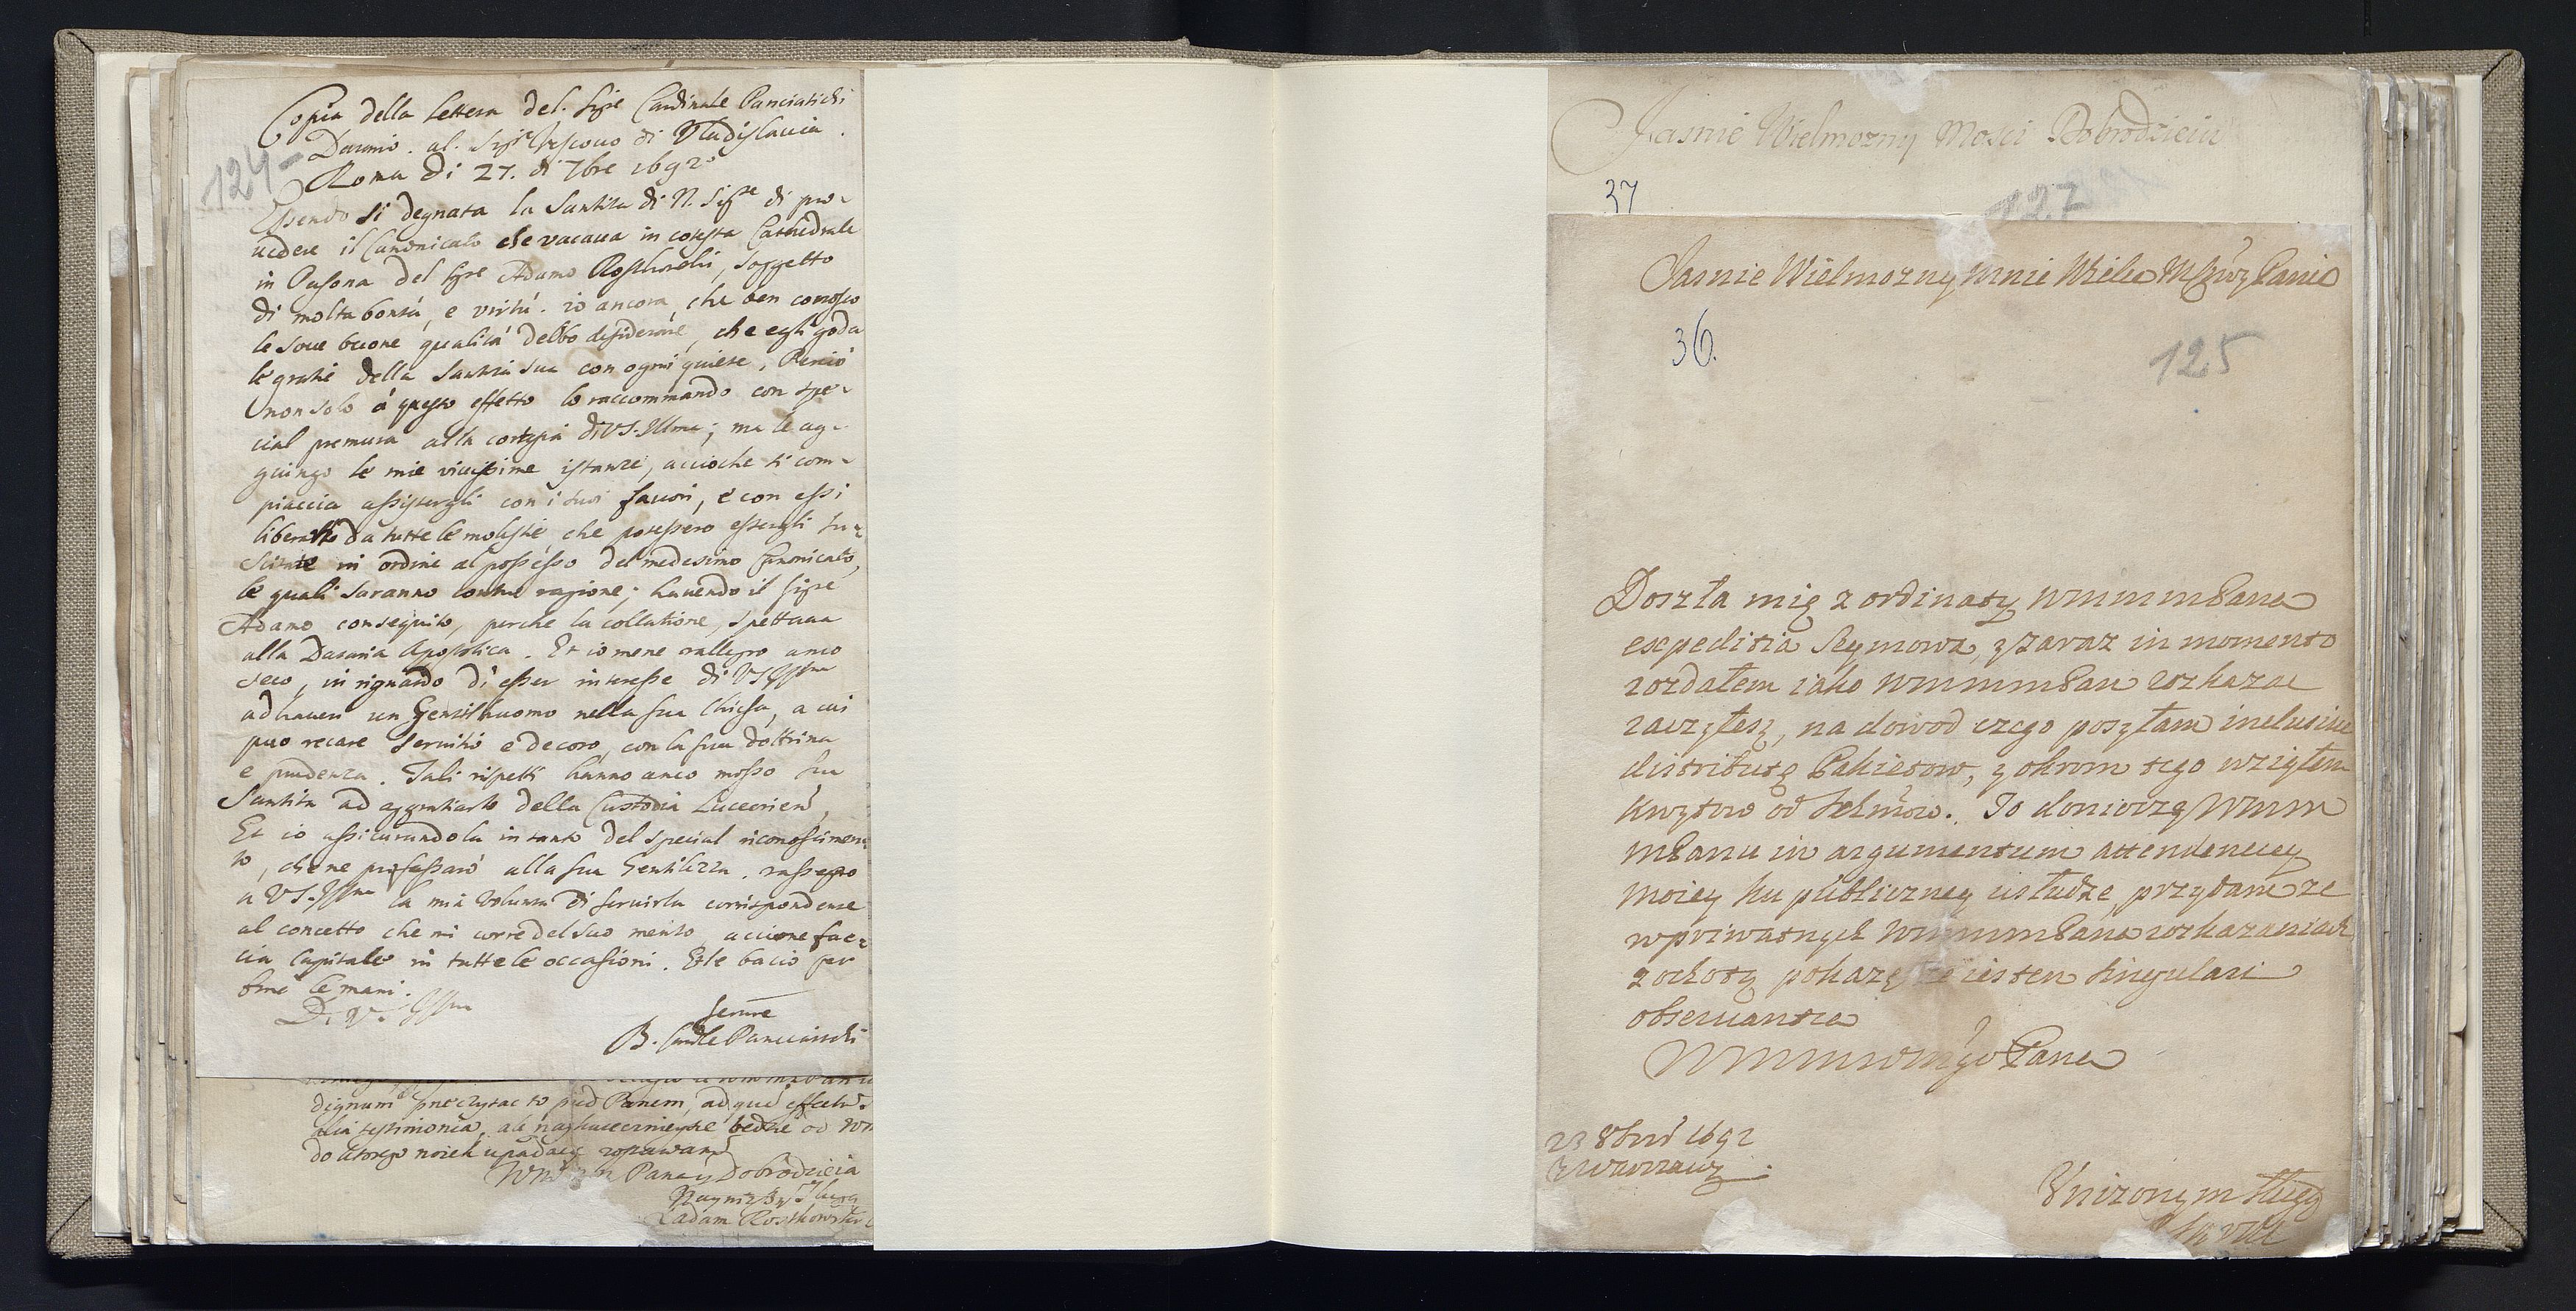 Copia della lettera del Sigre Cardinale Panciatichi
Datario. al. Sigre Vescouo di Vladislauia.
124
Roma di 27. di 7bre 1692
Essendo si degnata la Santita di N. Sigre di pro-
uedere il Canonicato che vacaua in cotesta Cathedrale
in Persona del Sigre Adamo Rostkowski, soggetto
di molta bontà, e virtù. io ancora, che ben conosco
le soue buone qualità debbo desiderare, che egli goda
le gratie della Santità sua con ogni quiete, Perciò
non solo à questo effetto lo raccommando con spe-
cial premura alla cortesia di VS. Illma; ma le ag-
giungo le mie viuissime istanze, accioche si com-
piaccia assistergli con i suoi fauori, e con essi
liberarlo da tutte le molestie che potessero essergli su-
scitate in ordine al possesso del medesimo Canonicato,
le quali saranno contro ragione; hauendo il Sigre
Adamo conseguito, perche la collatione, spettaua
alla Dataria Apostolica. Et io mene rallegro anco
seco, in riguardo di esser interesse di VS Illma
ad hauere un Gentilhuomo nella sua Chiesa, a cui
puo recare seruitio e decoro, con la sua dottrina
e prudenza. Tali rispetti hanno anco mosso sua
Santita ad aggratiarlo della Custodia Luceorien,
Et io assicurandola in tanto del special riconoscimen-
to, che ne professarò alla sua Gentilezza. rassegno
a VS. Illma la mia volunta di seruirla corrispondente
al concetto che mi corre del suo merito, accione fac-
cia Capitale in tutte le occasioni. Et le bacio per
fine le mani.
D. V. Illma
Serure
B. Cardle Panciatichi
dignum przeczytac to pred Panem, ad que
alia testimonia,
do ktorego nozek upadaiąc zostawam
Pana y Dobrodzieia
Naynizszy Sługa
Xadam Rostkowski
Jasnie Wielmozny Mosci Dobrodzieiu
37
127
Jasnie Wielmozny mnie Wielce Mściwy Panie
36.
125
Doszła mię z ordinaty Wmmmsana
expeditia Seymowa, y zaraz in momento
rozdałem iako Wmmmsan rozkazac
raczyłesz, na dowod czego posyłam inclusive
distributę Pakietow, y okrom tego wziąłem
kwytow od Sekrów. To doniozszy Wmm
msanu in argumentum attendencyey
moiey ku publiczney usłudze, przydam ze
w priwatnych Wmmmsana rozkazaniach
z ochotą pokazę że iestem singulari
observantia
23 8bris 1692
z Warszawy.
Unizonym sługą